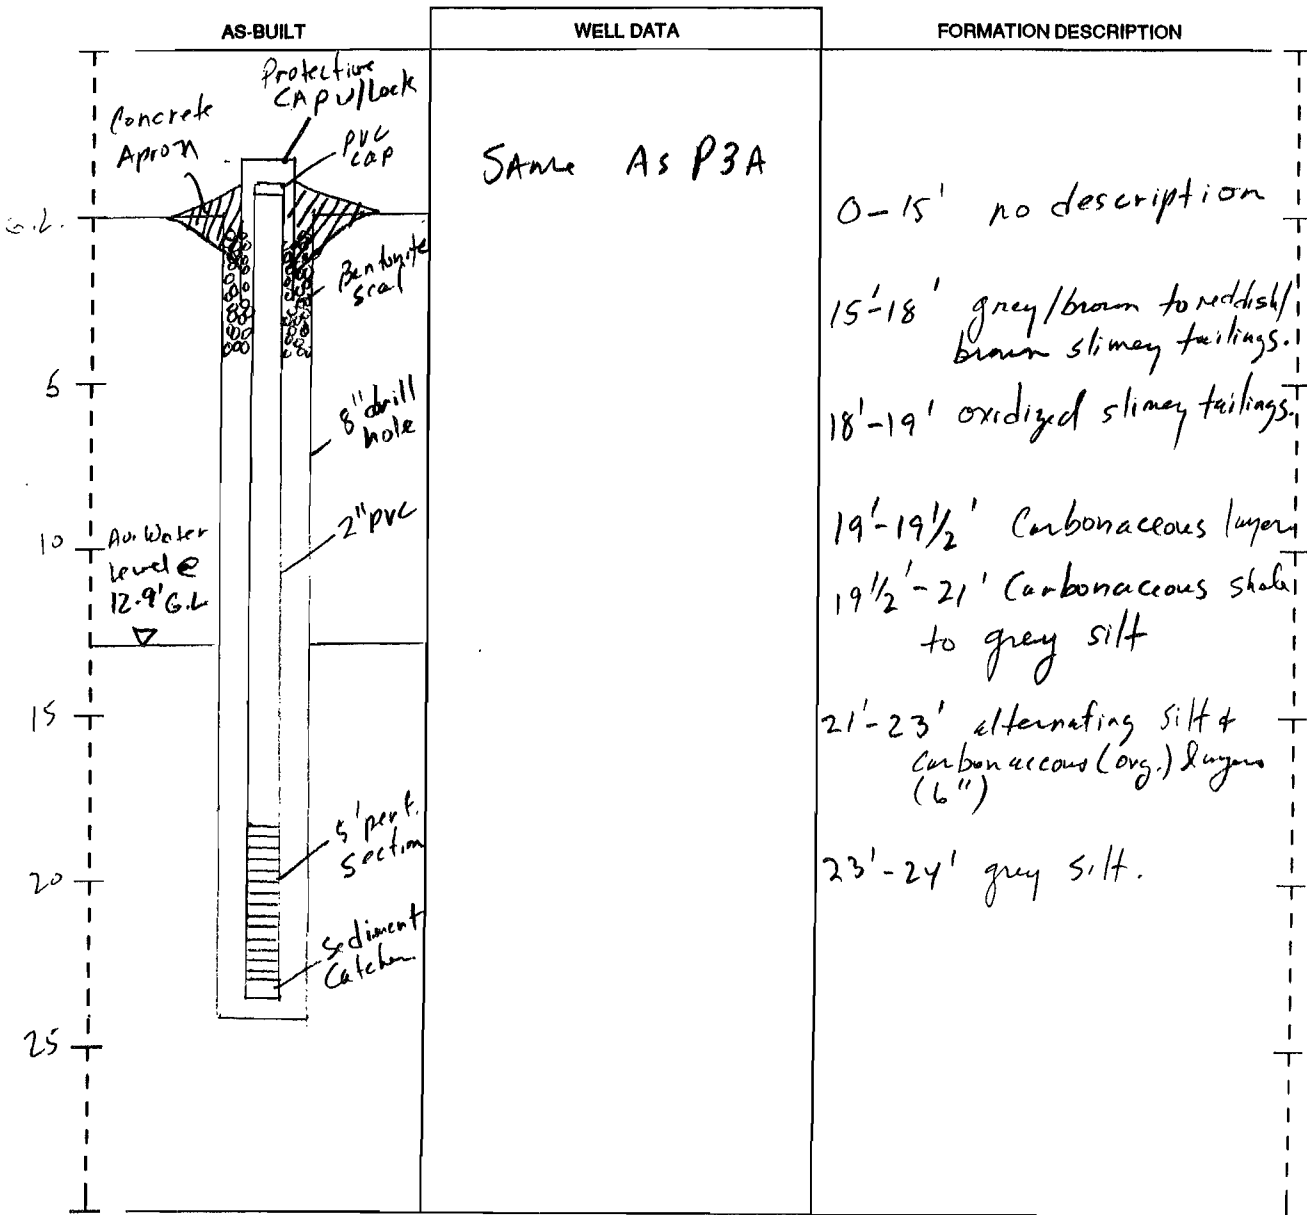 AS-BUILT
WELL DATA
FORMATION DESCRIPTION
Protective
CAP w/Lock
Concrete
Apron
PVC
CAP
G.L.
Bentonite
seal
5
8" drill
hole
2" PVC
10
Av. Water
level @
12.9' G.L
15
5' perf.
section
20
Sediment
Catcher
25
SAme As P3A
0-15' no description
15'-18' grey/brown to reddish/
brown slimey tailings.
18'-19' oxidized slimey tailings.
19'-19 1/2' Carbonaceous layer
19 1/2'-21' Carbonaceous shale
to grey silt
21'-23' alternating silt &
Carbonaceous (org.) layers
(6")
23'-24' grey silt.